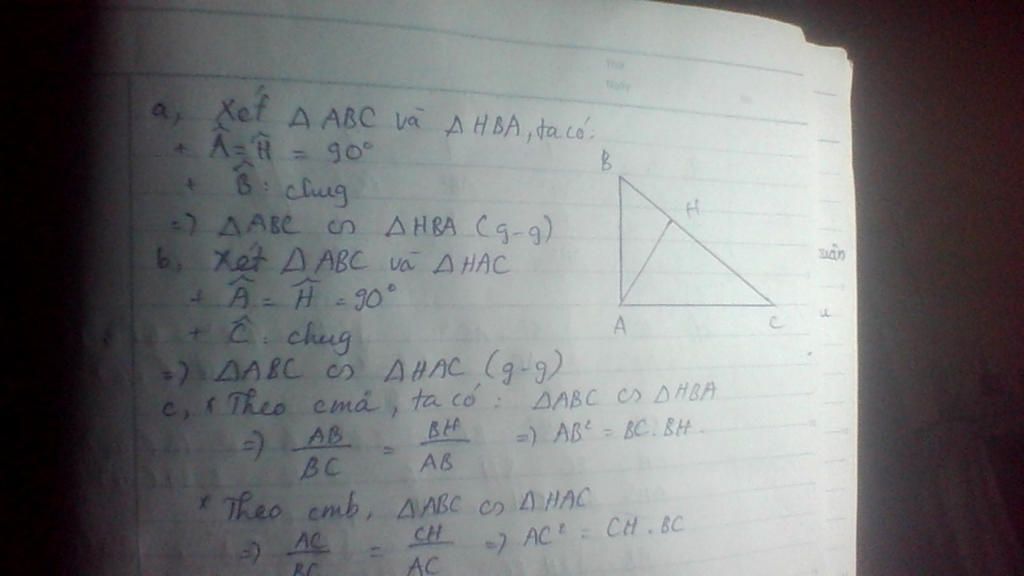 Thứ
Ngày
a, Xét Δ ABC và Δ HBA, ta có:
+ Â = Ĥ = 90°
+ B̂ : chug
=) Δ ABC ∽ Δ HBA (g-g)
b, Xét Δ ABC và Δ HAC
+ Â = Ĥ = 90°
+ Ĉ : chug
=) Δ ABC ∽ Δ HAC (g-g)
c, * Theo cma, ta có : Δ ABC ∽ Δ HBA
=) AB/BC = BH/AB =) AB² = BC.BH.
* Theo cmb, Δ ABC ∽ Δ HAC
=) AC/BC = CH/AC =) AC² = CH.BC
B
H
A
C